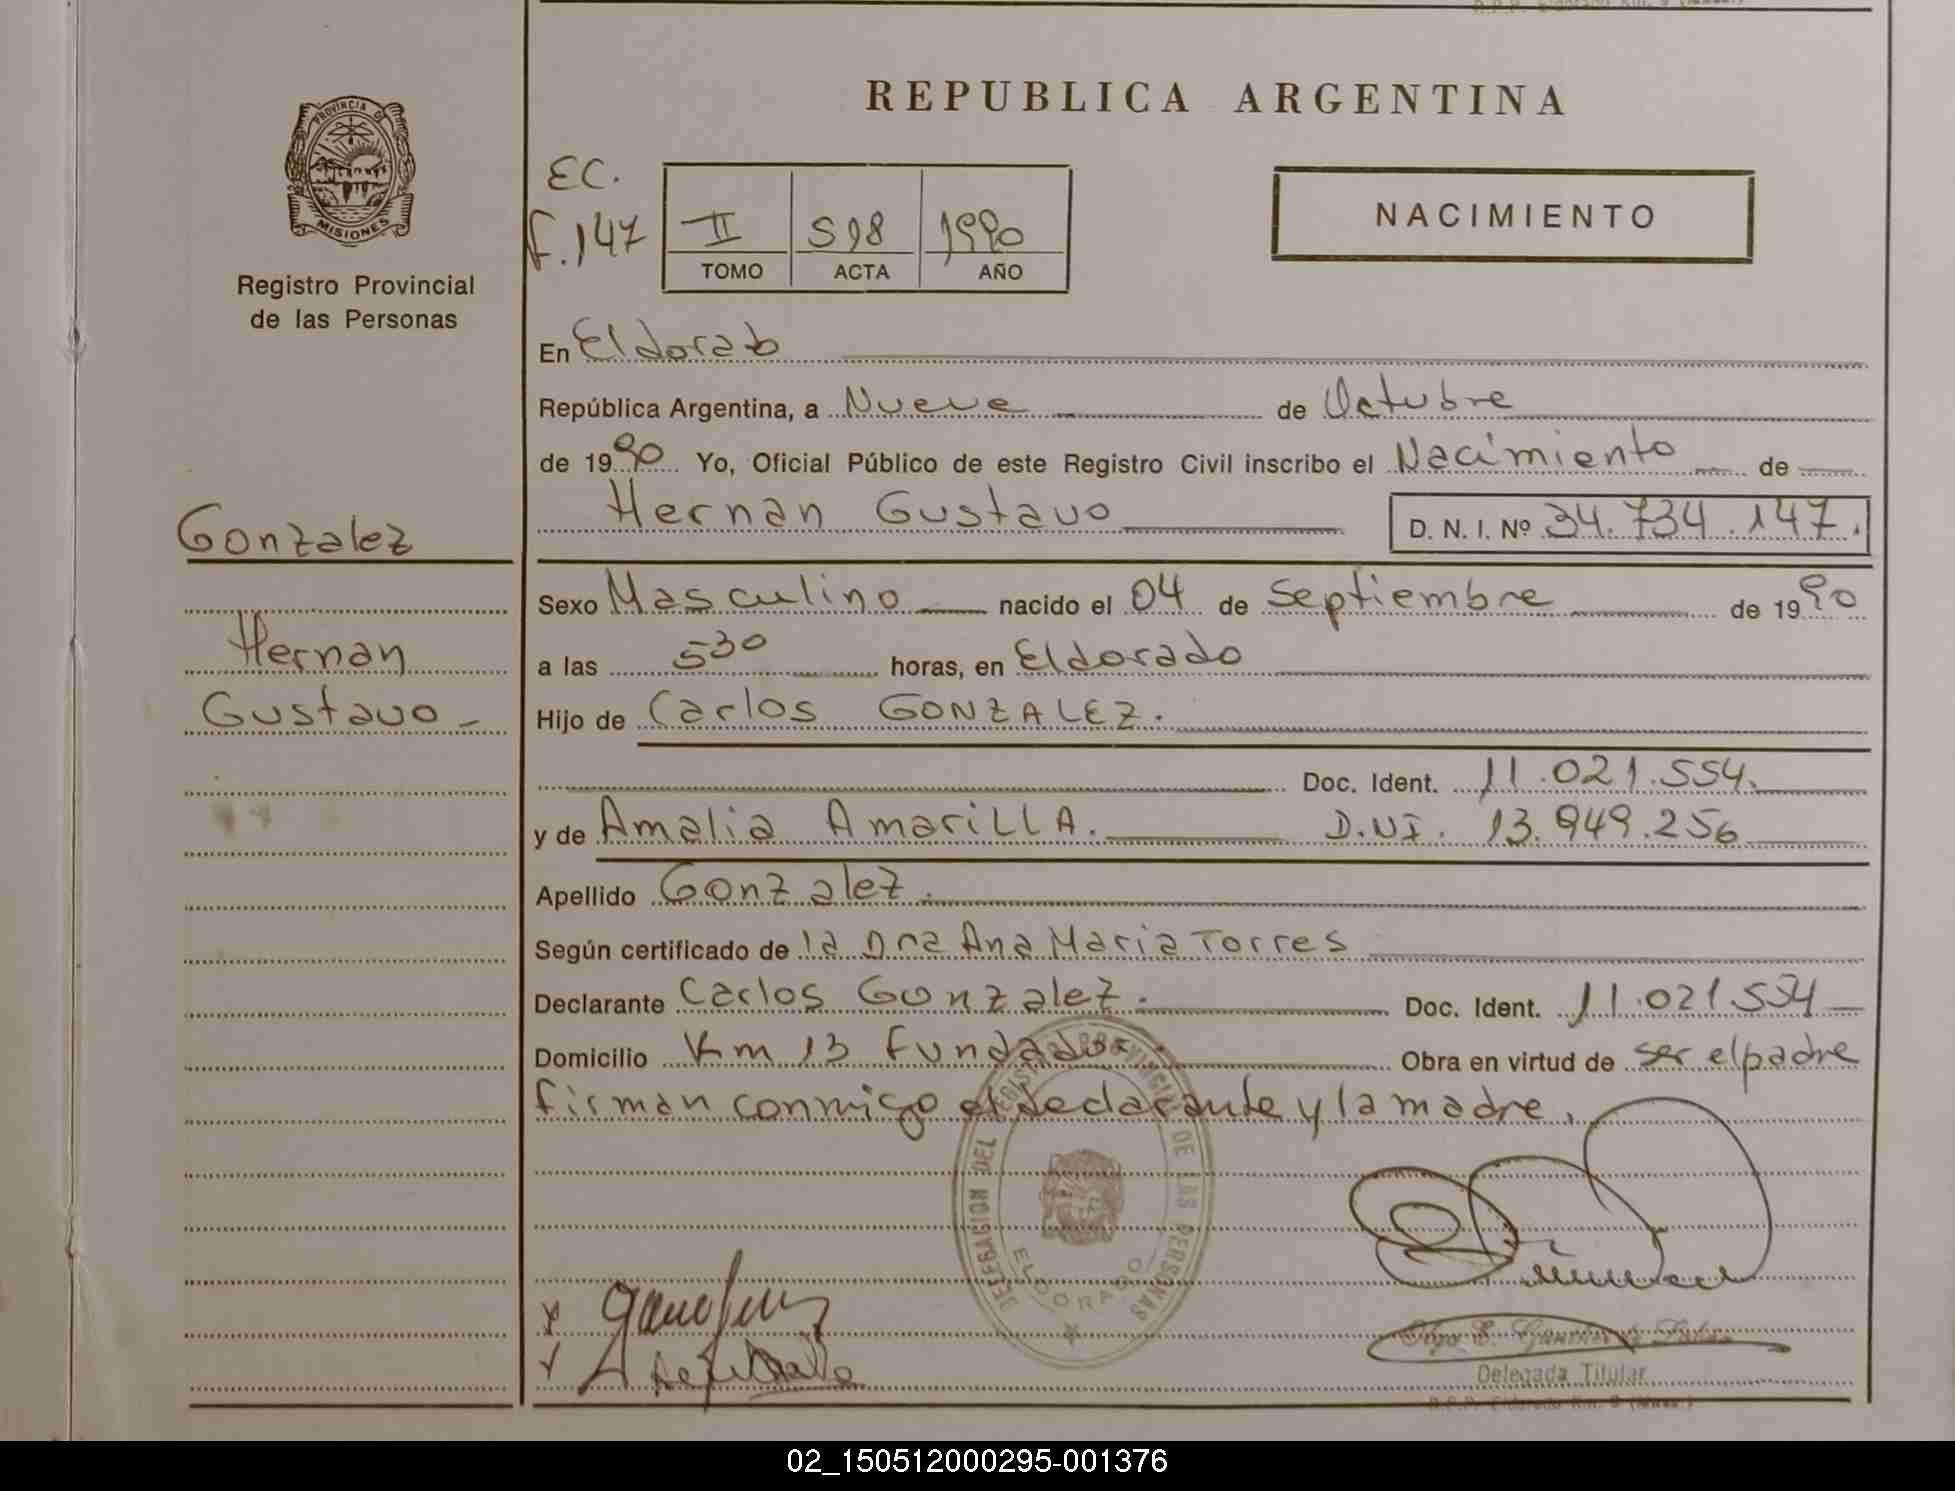 REPUBLICA ARGENTINA
PROVINCIA DE
MISIONES
Registro Provincial
de las Personas
EC.
F.147
II 598 1990
TOMO ACTA AÑO
NACIMIENTO
En Eldorado
República Argentina, a Nueve de Octubre
de 1990 Yo, Oficial Público de este Registro Civil inscribo el Nacimiento de
Hernan Gustavo D. N. I. Nº 34.734.147.
Gonzalez
Hernan
Gustavo
Sexo Masculino nacido el 04 de Septiembre de 1990
a las 530 horas, en Eldorado
Hijo de Carlos GONZALEZ.
Doc. Ident. 11.021.554.
y de Amalia AmariLLA. D.NI. 13.949.256
Apellido Gonzalez.
Según certificado de la Dra Ana Maria Torres
Declarante Carlos Gonzalez. Doc. Ident. 11.021.554
Domicilio Km 13 Fundador. Obra en virtud de ser el padre
firman conmigo el declarante y la madre.
DELEGACION DEL REGISTRO PROVINCIAL DE LAS PERSONAS
ELDORADO
Delegada Titular
R.P.P. Eldorado Km. 9 (Mnes.)
02_150512000295-001376